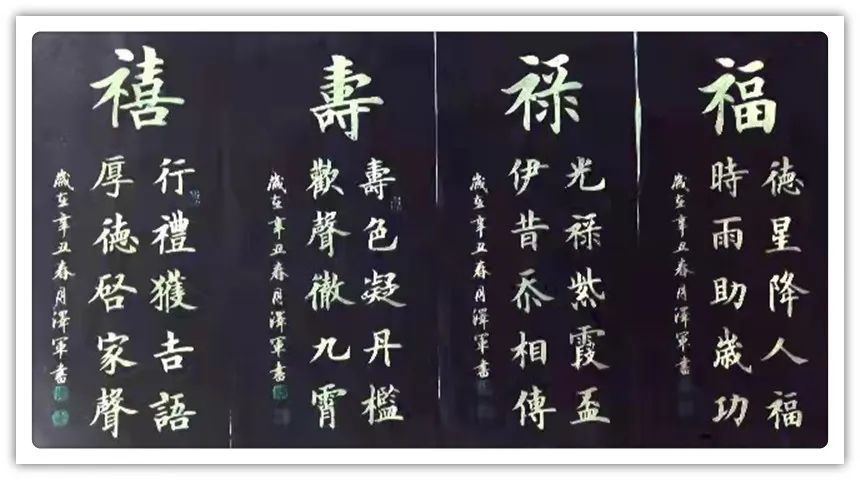 福
德星降人福
時雨助歲功
歲在辛丑春月澤軍書
祿
光祿紫霞盃
伊昔忝相傳
歲在辛丑春月澤軍書
壽
壽色凝丹檻
歡聲徹九霄
歲在辛丑春月澤軍書
禧
行禮獲吉語
厚德啓家聲
歲在辛丑春月澤軍書